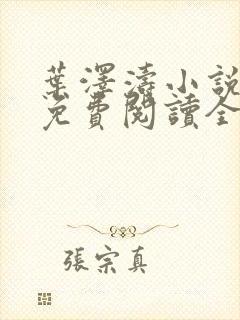 葉澤濤小說
免費閱讀全
張宗真